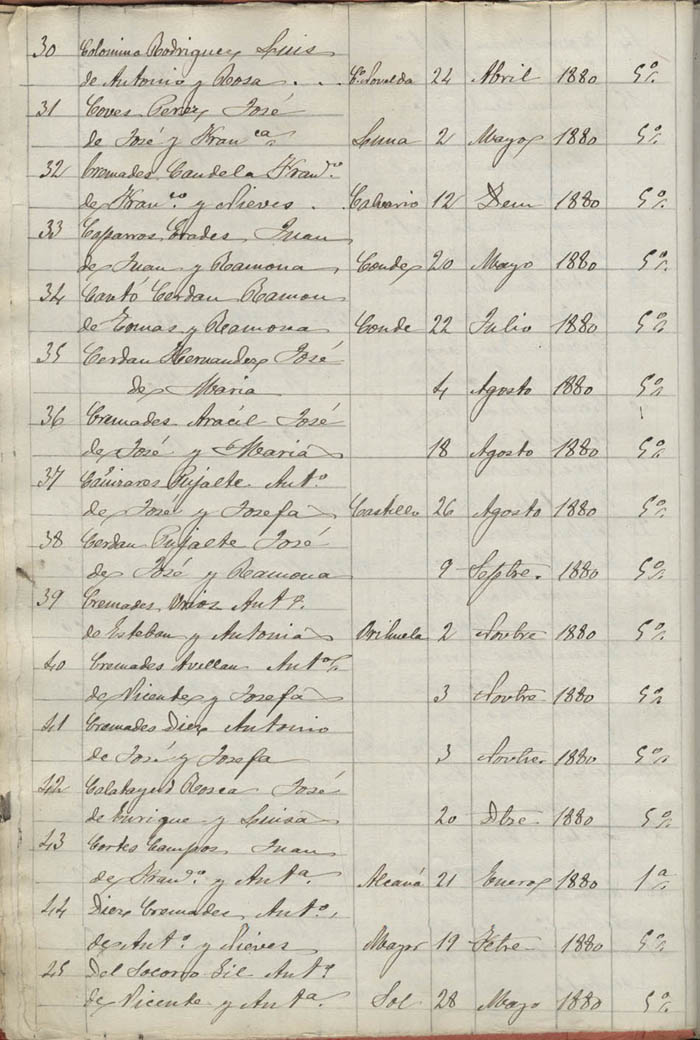 30 Colomina Rodriguez Luis
de Antonio y Rosa . . . Cª Novelda 24 Abril 1880 5ª
31 Coves Perez José
de José y Franca Luna 2 Mayo 1880 5ª
32 Cremades Candela Frano
de Franco y Nieves . Calvario 12 Dem 1880 5ª
33 Caparros Prades Juan
de Juan y Ramona Conde 20 Mayo 1880 5ª
34 Cantó Cerdan Ramon
de Tomas y Ramona Conde 22 Julio 1880 5ª
35 Cerdan Hernandez José
de Maria 4 Agosto 1880 5ª
36 Cremades Aracil José
de José y Maria 18 Agosto 1880 5ª
37 Cañizares Pujalte Anto
de José y Josefa Castillo 26 Agosto 1880 5ª
38 Cerdan Pujalte José
de José y Ramona 9 Septre. 1880 5ª
39 Cremades Urios Anto.
de Esteban y Antonia Orihuela 2 Novbre 1880 5ª
40 Cremades Avellan Anto
de Vicente y Josefa 3 Novbre 1880 5ª
41 Cremades Diez Antonio
de José y Josefa 3 Novbre 1880 5ª
42 Calatayud Rosca José
de Enrique y Luisa 20 Dbre 1880 5ª
43 Cortes Campos Juan
de Frano. y Anta. Alcaná 21 Enero 1880 1ª
44 Diez Cremades Anto.
de Anto. y Nieves Mayor 19 Febre 1880 5ª
45 Del Socorro Gil Anto
de Vicente y Anta. Sol 28 Mayo 1880 5ª